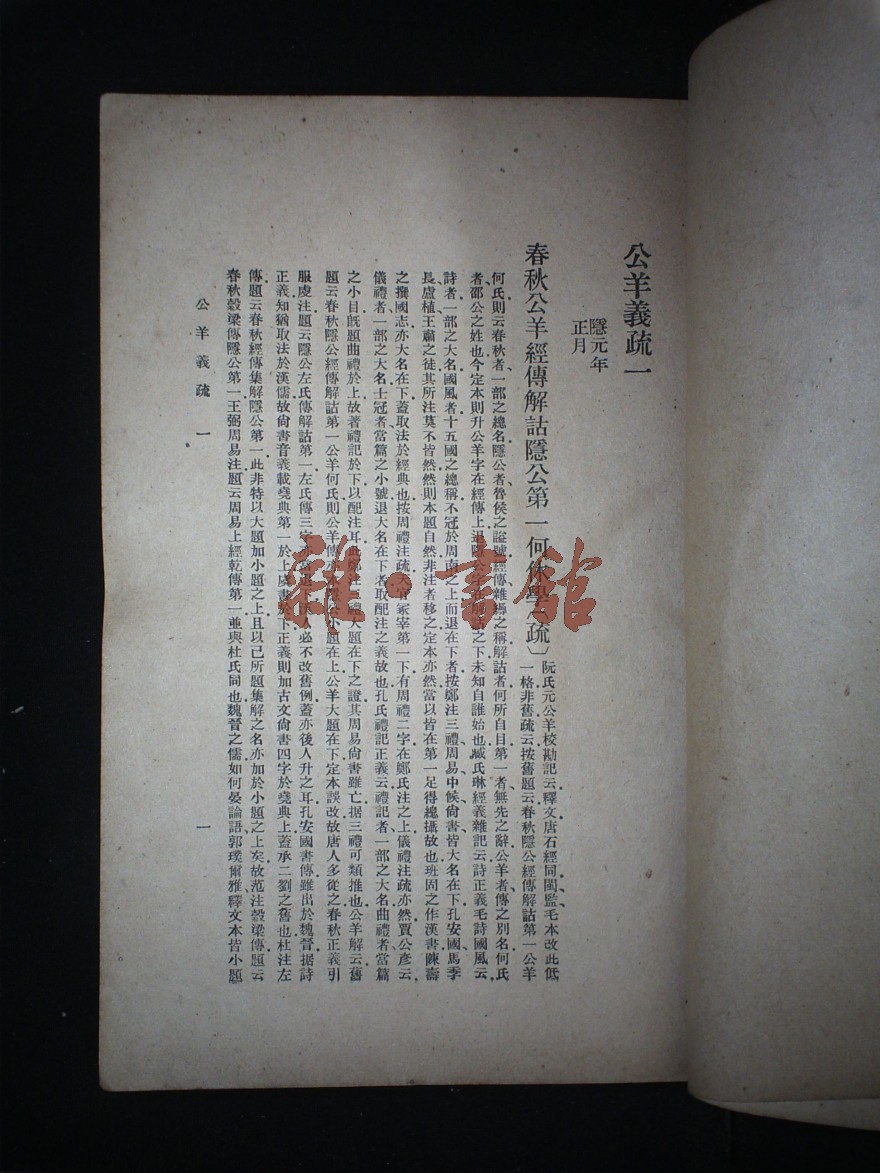 公羊義疏一
隱元年
正月
春秋公羊經傳解詁隱公第一何休學疏〕阮氏元公羊校勘記云釋文唐石經同閩監毛本改此低
一格非舊疏云按舊題云春秋隱公經傳解詁第一公羊
何氏則云春秋者一部之總名隱公者魯侯之諡號經傳雜縟之稱解詁者何所自目第一者無先之辭公羊者傳之別名何氏
者邵公之姓也今定本則升公羊字在經傳上退隱公字在解詁之下未知自誰始也臧氏琳經義雜記云詩正義毛詩國風云
詩者一部之大名國風者十五國之總稱不冠於周南之上而退在下者按鄭注三禮周易中候尙書皆大名在下孔安國馬季
長盧植王肅之徒其所注莫不皆然然則本題自然非注者移之定本亦然當以皆在第一足得總攝故也班固之作漢書陳壽
之撰國志亦大名在下蓋取法於經典也按周禮注疏天官冢宰第一下有周禮二字在鄭氏注之上儀禮注疏亦然賈公彥云
儀禮者一部之大名士冠者當篇之小號退大名在下者取配注之義故也孔氏禮記正義云禮記者一部之大名曲禮者當篇
之小目旣題曲禮於上故著禮記於下以配注耳此鄭注三禮大題在下之證其周易尙書雖亡据三禮可類推也公羊解云舊
題云春秋隱公經傳解詁第一公羊何氏則公羊傳亦本隱公小題在上公羊大題在下定本誤改故唐人多從之春秋正義引
服虔注題云隱公左氏傳解詁第一左氏傳三字亦當退人必不改舊例蓋亦後人升之耳孔安國書傳雖出於魏晉据詩
正義知猶取法於漢儒故尙書音義載堯典第一於上虞書於下正義則加古文尙書四字於堯典上蓋承二劉之舊也杜注左
傳題云春秋經傳集解隱公第一此非特以大題加小題之上且以己所題集解之名亦加於小題之上矣故范注穀梁傳題云
春秋穀梁傳隱公第一王弼周易注題云周易上經乾傳第一並與杜氏同也魏晉之儒如何晏論語郭璞爾雅釋文本皆小題
公羊義疏 一
一
雜·書館